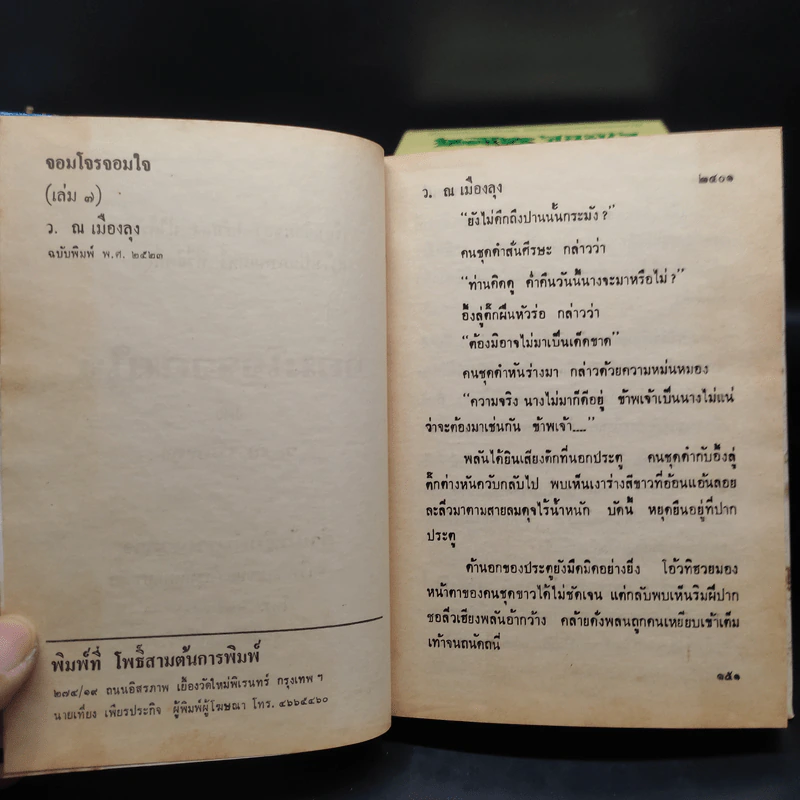 จอมโจรจอมใจ
(เล่ม ๗)
ว. ณ เมืองลุง
ฉบับพิมพ์ พ.ศ. ๒๕๒๓
พิมพ์ที่ โพธิ์สามต้นการพิมพ์
๒๗๔/๑๙ ถนนอิสรภาพ เยื้องวัดใหม่พิเรนทร์ กรุงเทพ ฯ
นายเที่ยง เพียรประกิจ ผู้พิมพ์ผู้โฆษณา โทร. ๔๖๖๕๔๖๐
ว. ณ เมืองลุง ๒๕๐๑
“ยังไม่คึกถึงปานนั้นกระมัง ?”
คนชุดดำสั่นศีรษะ กล่าวว่า
“ท่านคิดดู ค่ำคืนวันนี้นางจะมาหรือไม่ ?”
อึ้งลู่ตั๊กฝืนหัวร่อ กล่าวว่า
“ต้องมิอาจไม่มาเป็นเด็ดขาด”
คนชุดดำหันร่างมา กล่าวด้วยความหม่นหมอง
“ความจริง นางไม่มาก็ดีอยู่ ข้าพเจ้าเป็นนางไม่แน่
ว่าจะต้องมาเช่นกัน ข้าพเจ้า....”
พลันได้ยินเสียงดึกที่นอกประตู คนชุดดำกับอึ้งลู่
ตั๊กต่างหันควับกลับไป พบเห็นเงาร่างสีขาวที่อ้อนแอ้นลอย
ละลิ่วมาตามสายลมดุจไร้น้ำหนัก บัดนี้ หยุดยืนอยู่ที่ปาก
ประตู
ด้านนอกของประตูยังมืดมิดอย่างยิ่ง โอ้วทิฮวยมอง
หน้าตาของคนชุดขาวได้ไม่ชัดเจน แต่กลับพบเห็นริมฝีปาก
ซอลิ่วเฮียงพลันอ้ากว้าง คล้ายดั่งพลันถูกคนเหยียบเข้าเต็ม
เท้าจนถนัดถนี่
๑๕๑